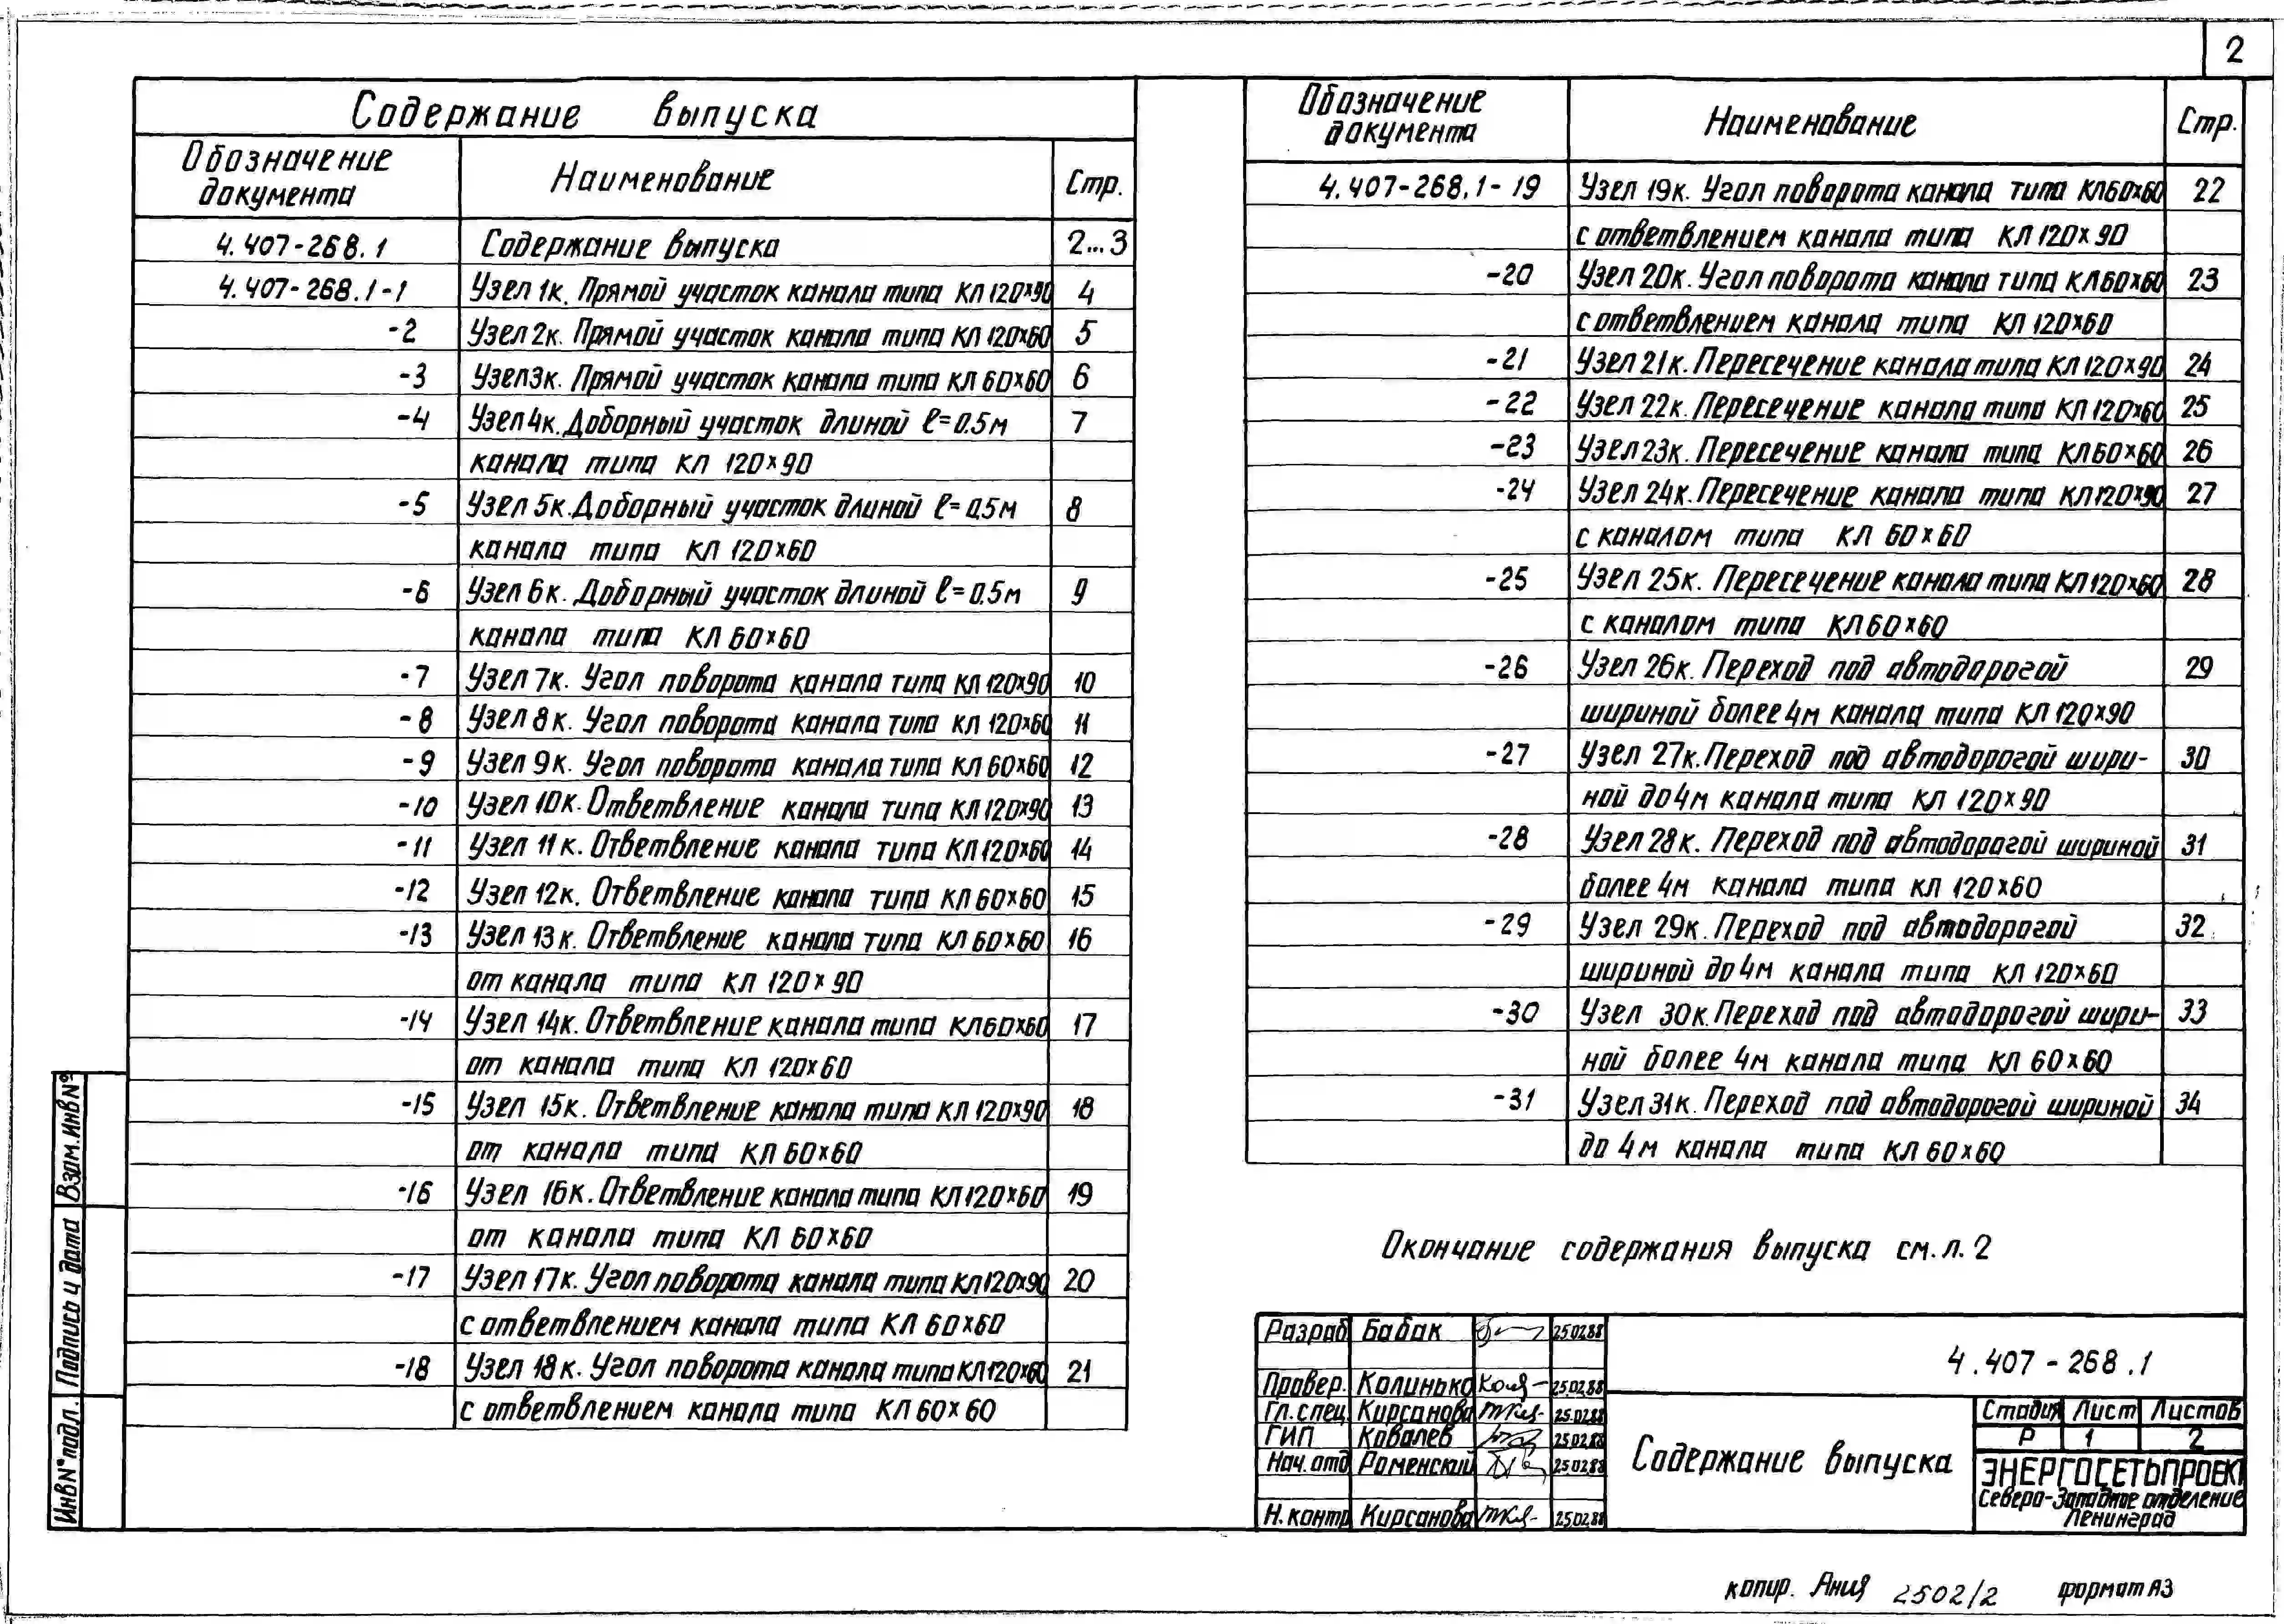 2
Содержание выпуска
Обозначение документа Наименование Стр.
4.407-268.1 Содержание выпуска 2...3
4.407-268.1-1 Узел 1к. Прямой участок канала типа КЛ 120×90 4
-2 Узел 2к. Прямой участок канала типа КЛ 120×60 5
-3 Узел 3к. Прямой участок канала типа КЛ 60×60 6
-4 Узел 4к. Доборный участок длиной ℓ=0.5м 7
канала типа КЛ 120×90
-5 Узел 5к. Доборный участок длиной ℓ=0,5м 8
канала типа КЛ 120×60
-6 Узел 6к. Доборный участок длиной ℓ=0.5м 9
канала типа КЛ 60×60
-7 Узел 7к. Угол поворота канала типа КЛ 120×90 10
-8 Узел 8к. Угол поворота канала типа КЛ 120×60 11
-9 Узел 9к. Угол поворота канала типа КЛ 60×60 12
-10 Узел 10к. Ответвление канала типа КЛ 120×90 13
-11 Узел 11к. Ответвление канала типа КЛ 120×60 14
-12 Узел 12к. Ответвление канала типа КЛ 60×60 15
-13 Узел 13к. Ответвление канала типа КЛ 60×60 16
от канала типа КЛ 120×90
-14 Узел 14к. Ответвление канала типа КЛ 60×60 17
от канала типа КЛ 120×60
-15 Узел 15к. Ответвление канала типа КЛ 120×90 18
от канала типа КЛ 60×60
-16 Узел 16к. Ответвление канала типа КЛ 120×60 19
от канала типа КЛ 60×60
-17 Узел 17к. Угол поворота канала типа КЛ 120×90 20
с ответвлением канала типа КЛ 60×60
-18 Узел 18к. Угол поворота канала типа КЛ 120×60 21
с ответвлением канала типа КЛ 60×60
Обозначение документа Наименование Стр.
4.407-268.1-19 Узел 19к. Угол поворота канала типа КЛ 60×60 22
с ответвлением канала типа КЛ 120×90
-20 Узел 20к. Угол поворота канала типа КЛ 60×60 23
с ответвлением канала типа КЛ 120×60
-21 Узел 21к. Пересечение канала типа КЛ 120×90 24
-22 Узел 22к. Пересечение канала типа КЛ 120×60 25
-23 Узел 23к. Пересечение канала типа КЛ 60×60 26
-24 Узел 24к. Пересечение канала типа КЛ 120×90 27
с каналом типа КЛ 60×60
-25 Узел 25к. Пересечение канала типа КЛ 120×60 28
с каналом типа КЛ 60×60
-26 Узел 26к. Переход под автодорогой 29
шириной более 4м канала типа КЛ 120×90
-27 Узел 27к. Переход под автодорогой шири- 30
ной до 4м канала типа КЛ 120×90
-28 Узел 28к. Переход под автодорогой шириной 31
более 4м канала типа КЛ 120×60
-29 Узел 29к. Переход под автодорогой 32
шириной до 4м канала типа КЛ 120×60
-30 Узел 30к. Переход под автодорогой шири- 33
ной более 4м канала типа КЛ 60×60
-31 Узел 31к. Переход под автодорогой шириной 34
до 4м канала типа КЛ 60×60
Окончание содержания выпуска см.л.2
Разраб Бабак 25.02.88
Провер. Калинько 25.02.88
Гл.спец. Кирсанова 25.02.88
ГИП Ковалев 25.02.88
Нач.отд Раменский 25.02.88
Н.контр Кирсанова 25.02.88
4.407-268.1
Содержание выпуска
Стадия Лист Листов
Р 1 2
ЭНЕРГОСЕТЬПРОЕКТ
Северо-Западное отделение
Ленинград
Взам.инв№
Подпись и дата
Инв№подл.
копир. Ания 2502/2 формат А3